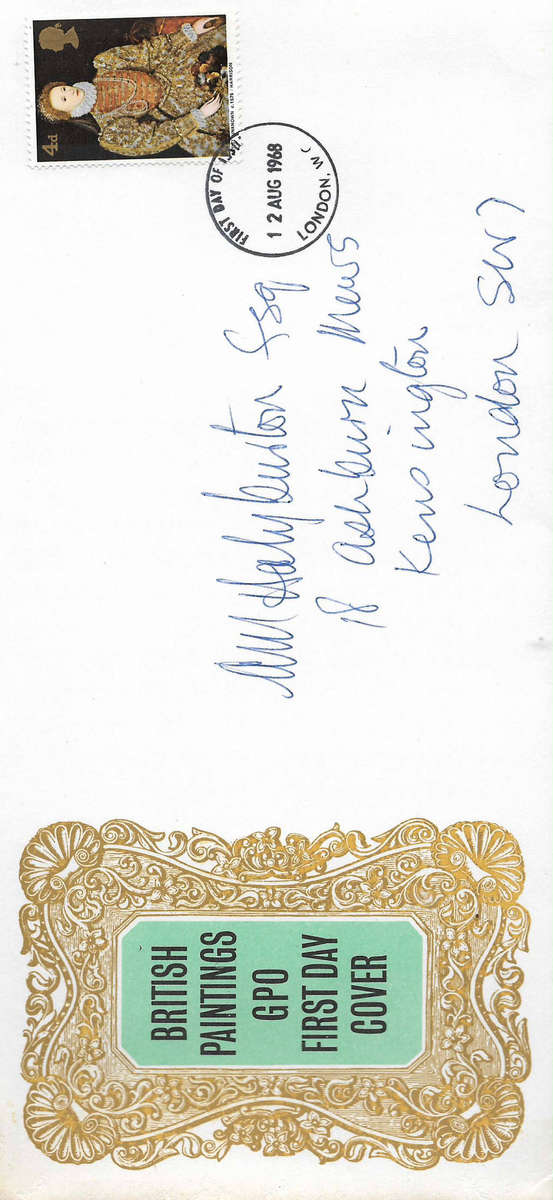 4d
UNKNOWN c.1575 · HARRISON
FIRST DAY OF ISSUE
12 AUG 1968
LONDON. W C
Halyburton Esq
18 Ashburn Mews
Kensington
London SW7
BRITISH
PAINTINGS
GPO
FIRST DAY
COVER